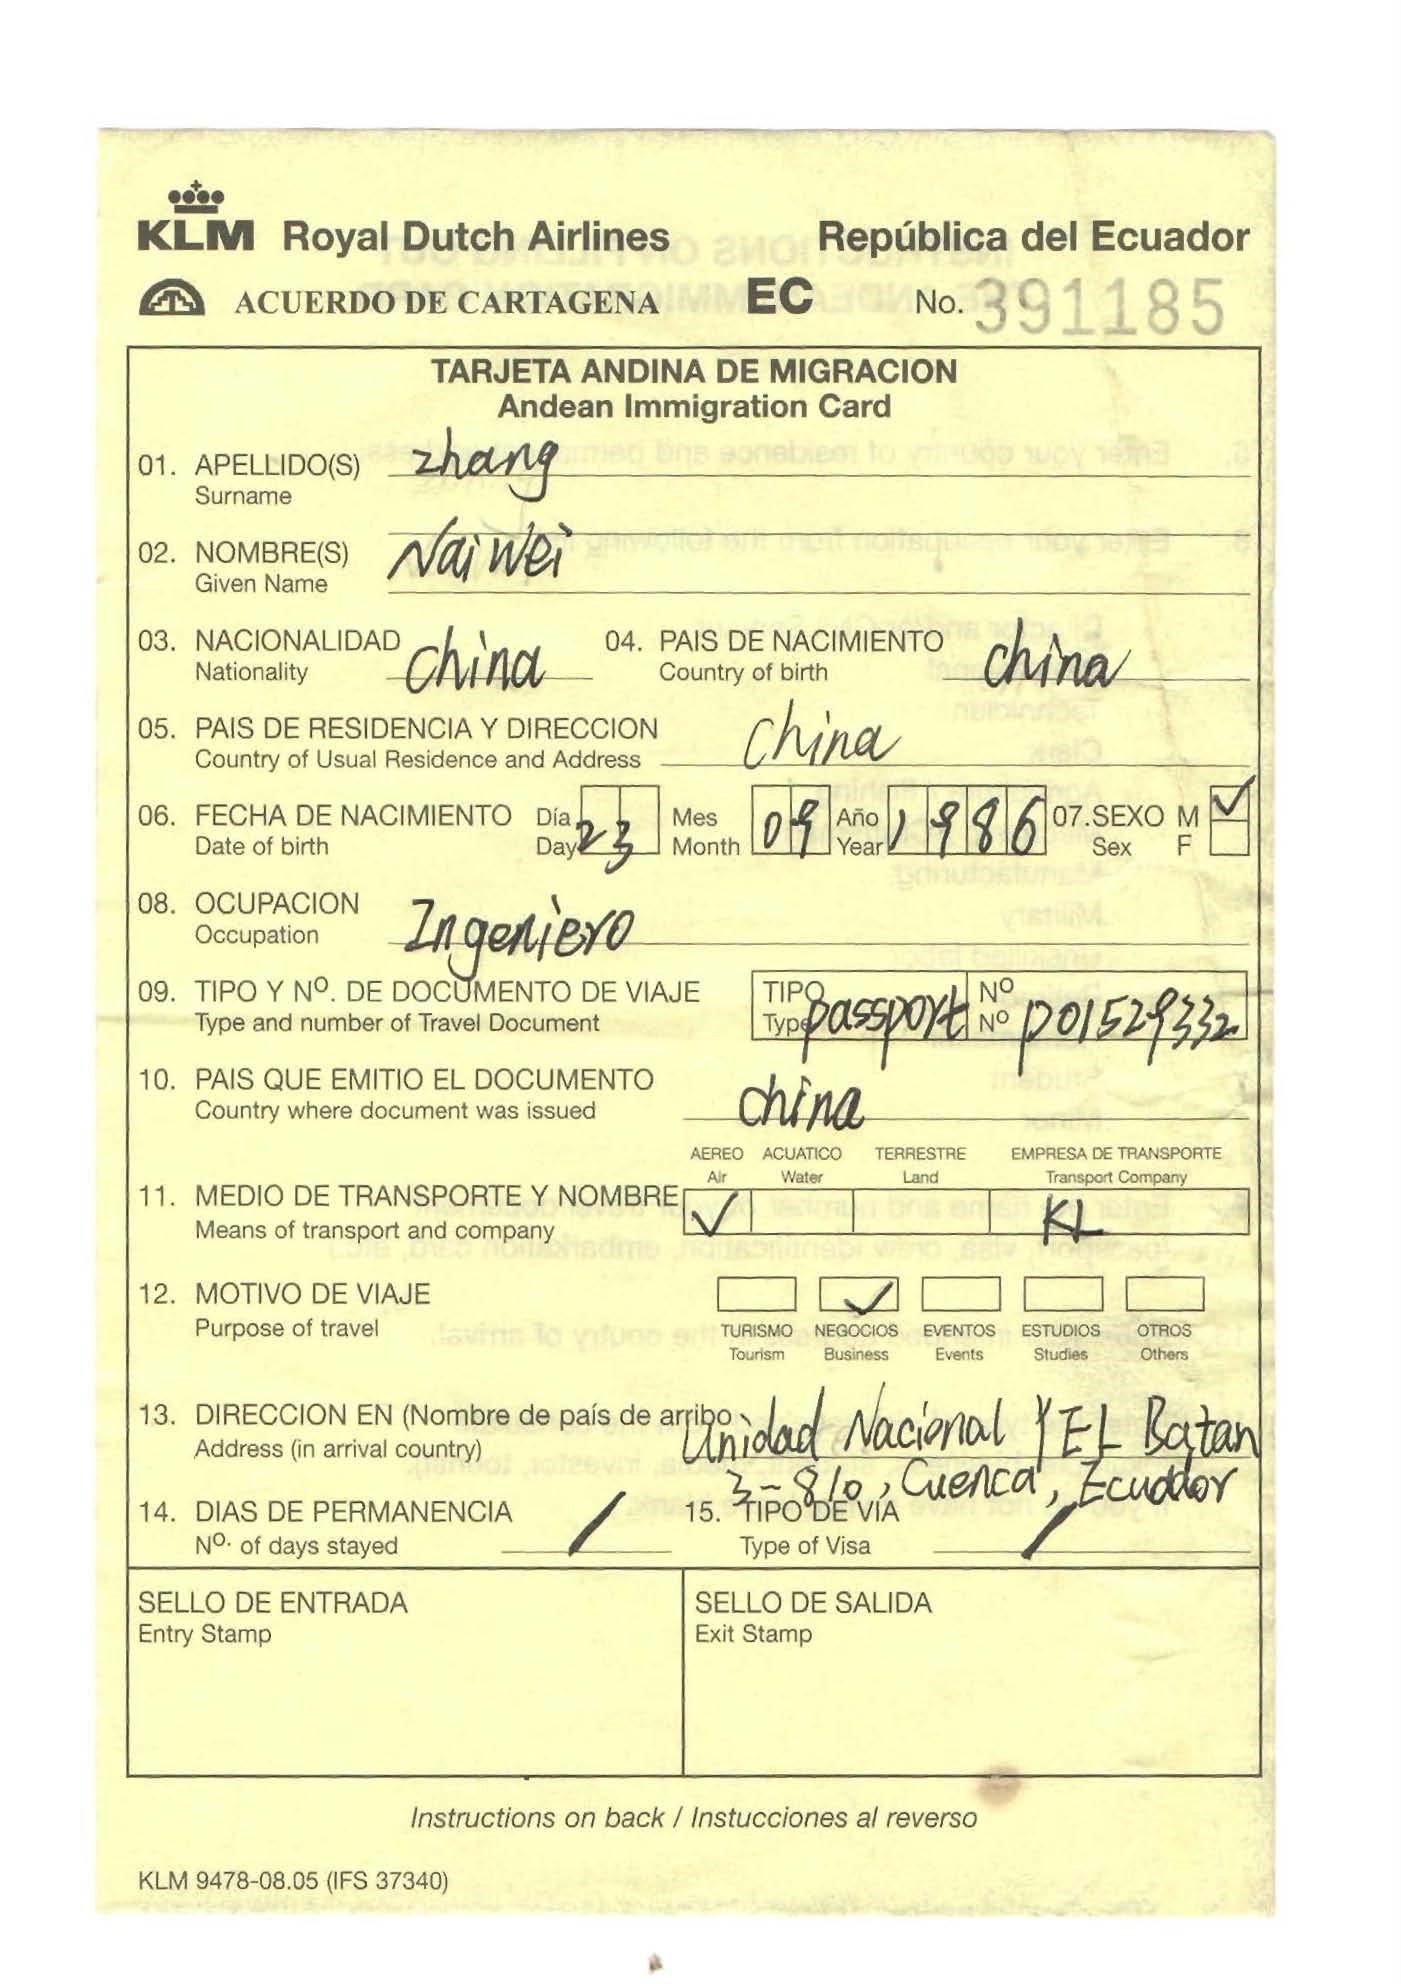 KLM Royal Dutch Airlines República del Ecuador
ACUERDO DE CARTAGENA EC No. 391185
TARJETA ANDINA DE MIGRACION
Andean Immigration Card
01. APELLIDO(S) zhang
Surname
02. NOMBRE(S) Nai Wei
Given Name
03. NACIONALIDAD china 04. PAIS DE NACIMIENTO china
Nationality Country of birth
05. PAIS DE RESIDENCIA Y DIRECCION china
Country of Usual Residence and Address
06. FECHA DE NACIMIENTO Día 23 Mes 09 Año 1986 07.SEXO M ✓
Date of birth Day Month Year Sex F
08. OCUPACION Ingeniero
Occupation
09. TIPO Y Nº. DE DOCUMENTO DE VIAJE TIPO passport Nº P01529332
Type and number of Travel Document Type Nº
10. PAIS QUE EMITIO EL DOCUMENTO china
Country where document was issued
AEREO ACUATICO TERRESTRE EMPRESA DE TRANSPORTE
Air Water Land Transport Company
11. MEDIO DE TRANSPORTE Y NOMBRE ✓ KL
Means of transport and company
12. MOTIVO DE VIAJE ✓
Purpose of travel TURISMO NEGOCIOS EVENTOS ESTUDIOS OTROS
Tourism Business Events Studies Others
13. DIRECCION EN (Nombre de país de arribo Unidad Nacional Y EL Batan
Address (in arrival country) 3-810, Cuenca, Ecuador
14. DIAS DE PERMANENCIA / 15. TIPO DE VIA /
Nº. of days stayed Type of Visa
SELLO DE ENTRADA SELLO DE SALIDA
Entry Stamp Exit Stamp
Instructions on back / Instucciones al reverso
KLM 9478-08.05 (IFS 37340)